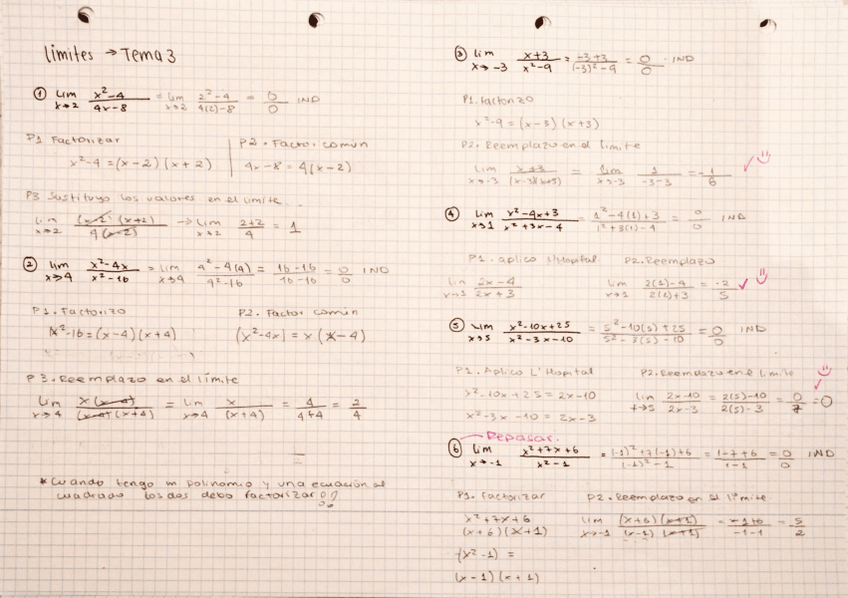 límites → Tema 3
① lim x→2 x²-4 / 4x-8 = lim x→2 2²-4 / 4(2)-8 = 0/0 IND
P1 Factorizar
x²-4 = (x-2)(x+2)
P2. Factor común
4x-8 = 4(x-2)
P3 Sustituyo los valores en el límite...
lim x→2 (x-2)(x+2) / 4(x-2) → lim x→2 2+2 / 4 = 1
② lim x→4 x²-4x / x²-16 = lim x→4 4²-4(4) / 4²-16 = 16-16 / 16-16 = 0/0 IND
P1. Factorizo
x²-16 = (x-4)(x+4)
P2. Factor común
(x²-4x) = x(x-4)
P3. Reemplazo en el límite
lim x→4 x(x-4) / (x-4)(x+4) = lim x→4 x / (x+4) = 4 / 4+4 = 2/4
* Cuando tengo un polinomio y una ecuación al
cuadrado los dos debo factorizar
③ lim x→-3 x+3 / x²-9 = -3+3 / (-3)²-9 = 0/0 · IND
P1. Factorizo
x²-9 = (x-3)(x+3)
P2. Reemplazo en el límite
lim x→-3 x+3 / (x-3)(x+3) = lim x→-3 1 / -3-3 = -1/6
④ lim x→1 x²-4x+3 / x²+3x-4 = 1²-4(1)+3 / 1²+3(1)-4 = 0/0 IND
P1. aplico l'Hopital
lim x→1 2x-4 / 2x+3
P2. Reemplazo
lim x→1 2(1)-4 / 2(1)+3 = -2/5
⑤ lim x→5 x²-10x+25 / x²-3x-10 = 5²-10(5)+25 / 5²-3(5)-10 = 0/0 IND
P1. Aplico L'Hopital
x²-10x+25 = 2x-10
x²-3x-10 = 2x-3
P2. Reemplazo en el límite
lim x→5 2x-10 / 2x-3 = 2(5)-10 / 2(5)-3 = 0/7 = 0
Repasar.
⑥ lim x→-1 x²+7x+6 / x²-1 = (-1)²+7(-1)+6 / (-1)²-1 = 1-7+6 / 1-1 = 0/0 IND
P1. Factorizar
x²+7x+6
(x+6)(x+1)
(x²-1) =
(x-1)(x+1)
P2. Reemplazo en el límite
lim x→-1 (x+6)(x+1) / (x-1)(x+1) = -1+6 / -1-1 = 5/2